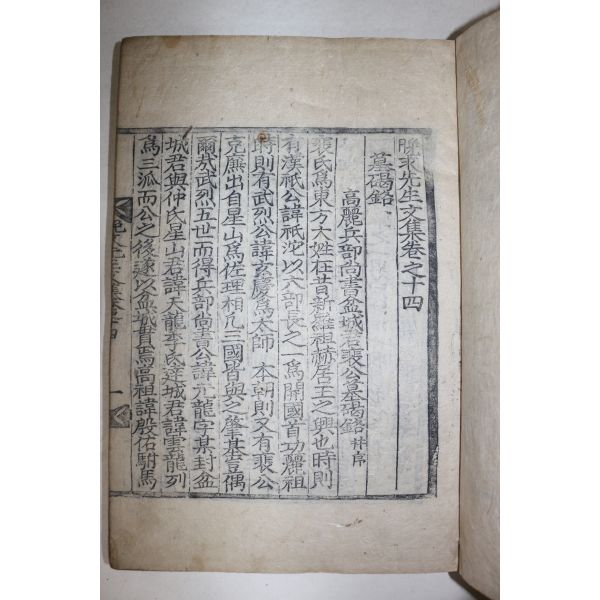 晚求先生文集卷之十四
墓碣銘
高麗兵部尚書盆城君裴公墓碣銘 幷序
裴氏爲東方大姓在昔新羅祖赫居王之興也時則
有漢祇公諱祇沱以六部長之一爲開國首功麗祖
時則有武烈公諱玄慶爲太師 本朝則又有裴公
克廉出自星山爲佐理相凡三國皆與之肇基豈偶
爾哉武烈五世而得兵部尚書公諱元龍字某封盆
城君與仲氏星山君諱天龍季氏達城君諱雲龍列
爲三派而公之後遂以盆城貫焉高祖諱殷佑駙馬
一